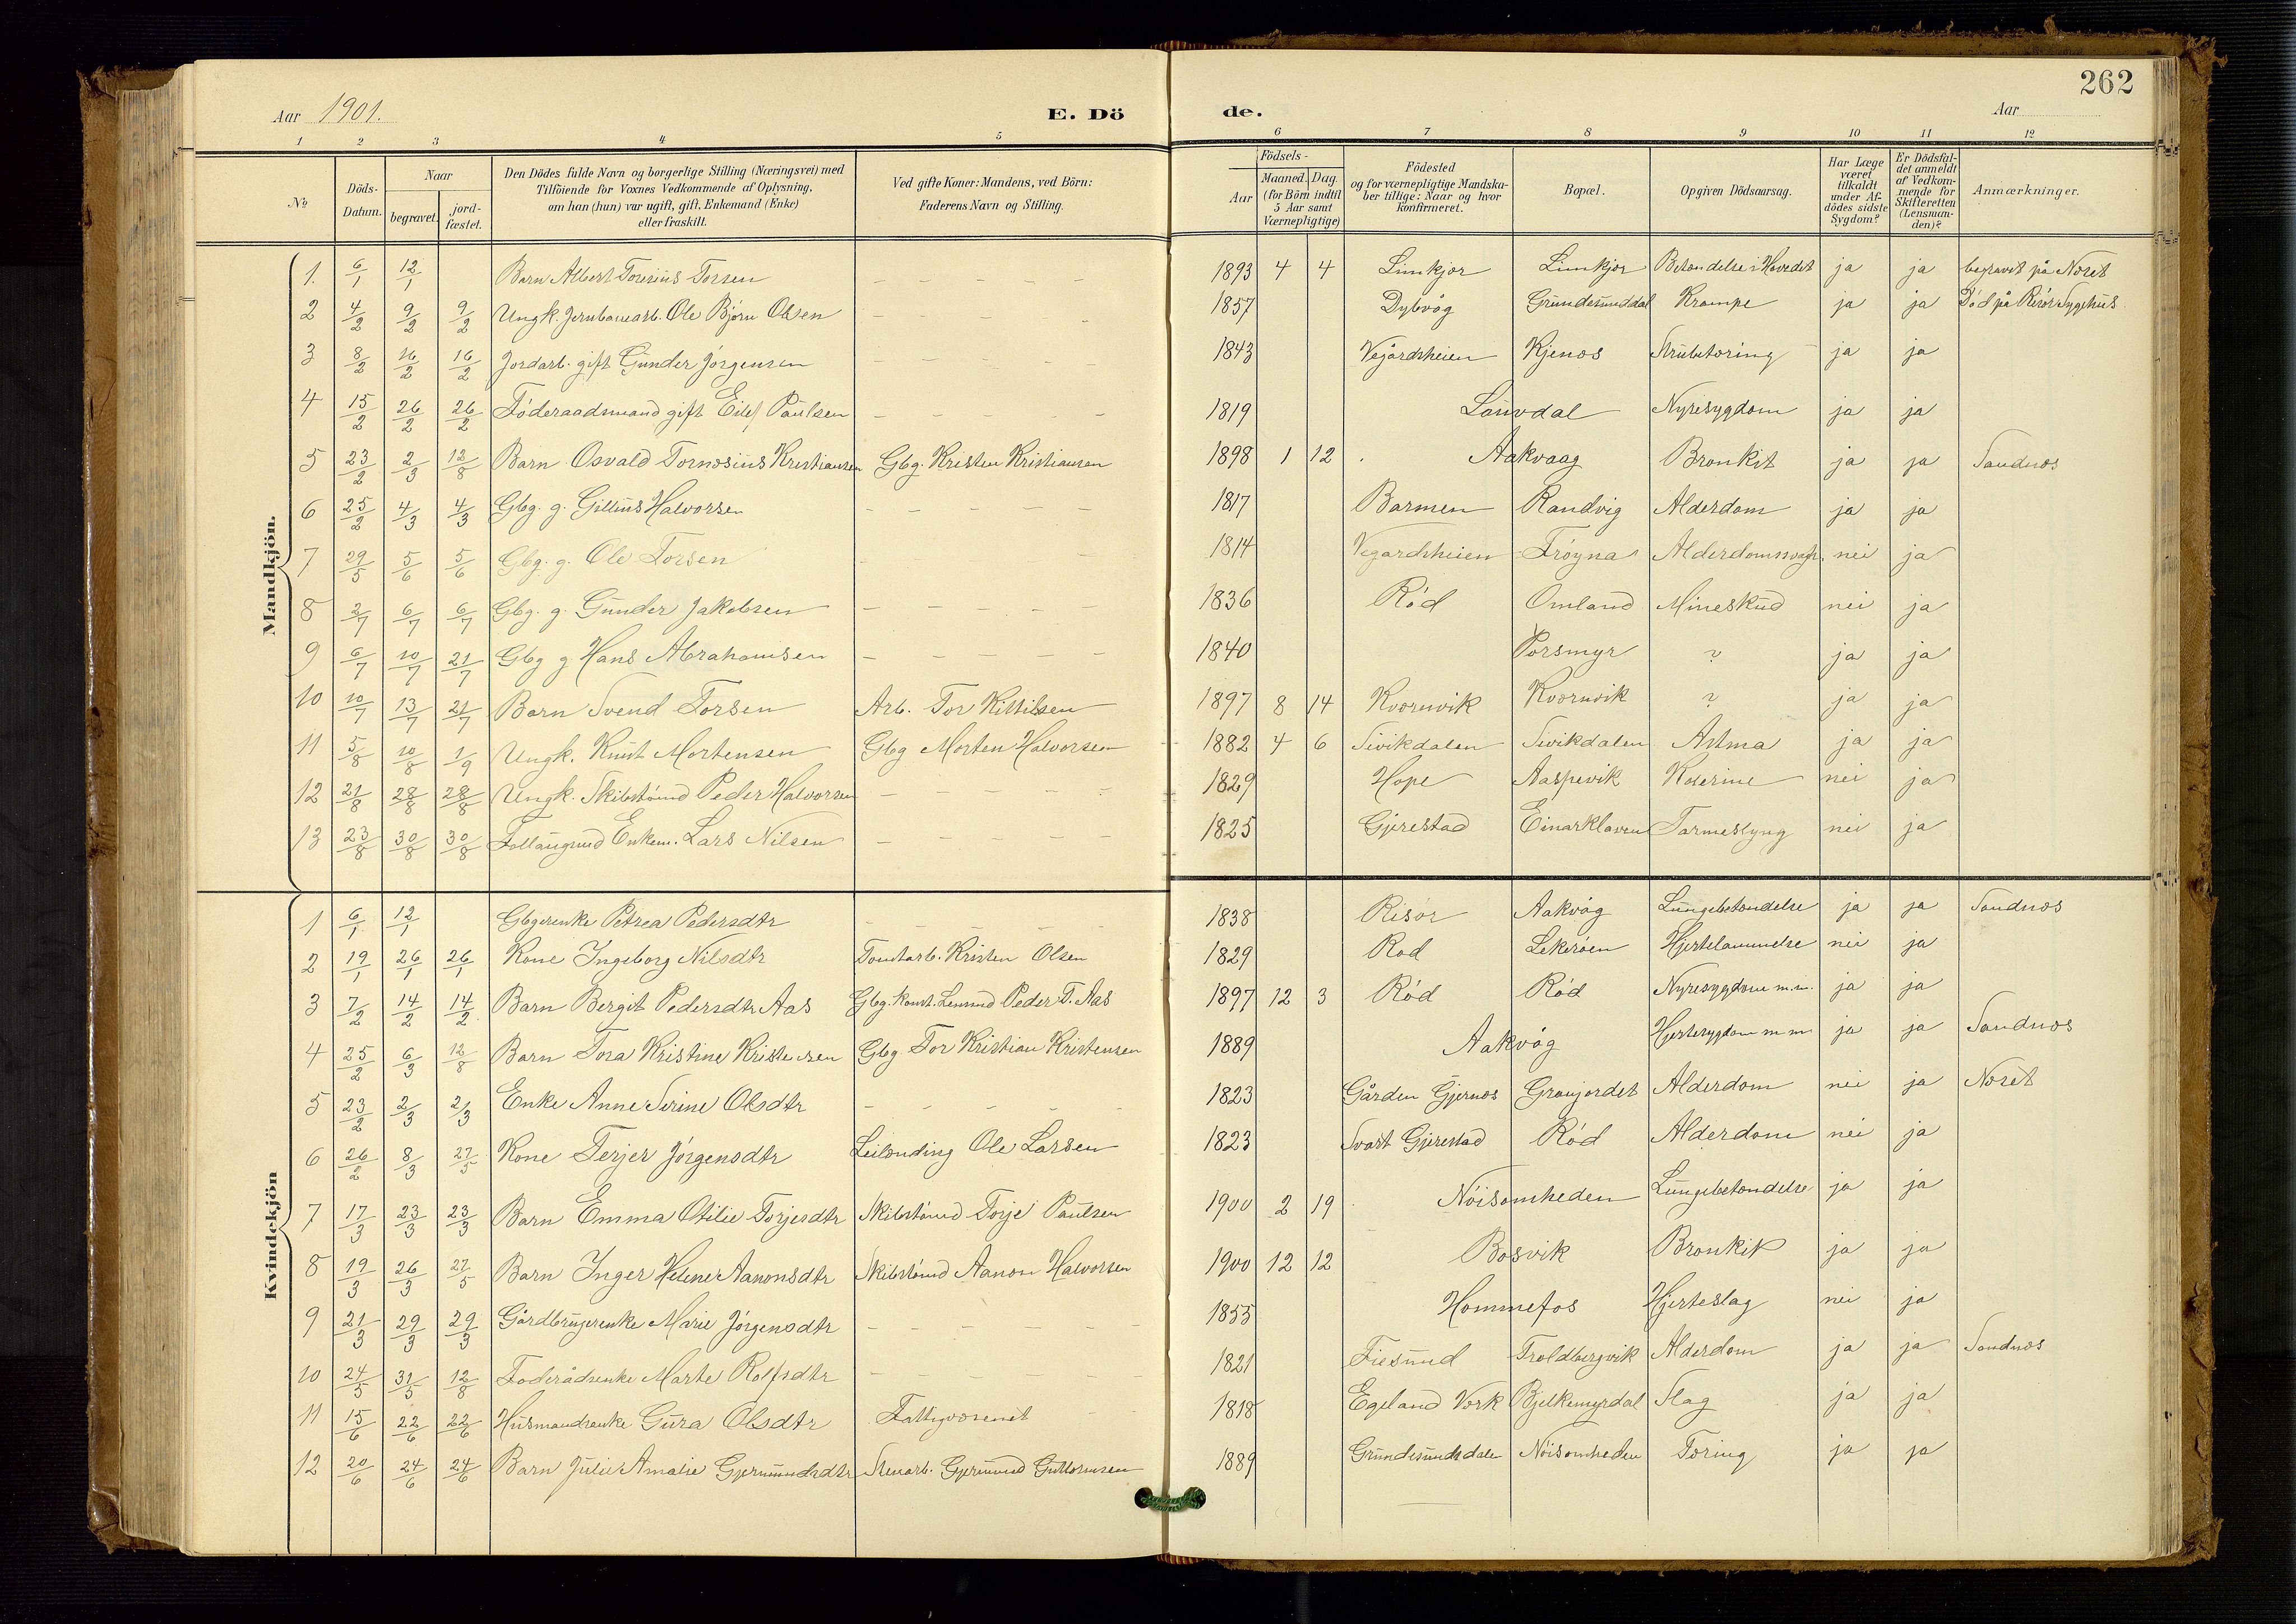 262
Aar 1901. E. Dö de. Aar
1 2 3 4 5 6 7 8 9 10 11 12
№ Döds-Datum. Naar begravet. jord-fæstet. Den Dödes fulde Navn og borgerlige Stilling (Næringsvei) med Tilföiende for Voxnes Vedkommende af Oplysning, om han (hun) var ugift, gift, Enkemand (Enke) eller fraskilt. Ved gifte Koner: Mandens, ved Börn: Faderens Navn og Stilling. Födsels- Aar Maaned. Dag. (for Börn indtil 5 Aar samt Værnepligtige) Födested og for værnepligtige Mandskaber tillige: Naar og hvor konfirmeret. Bopæl. Opgiven Dödsaarsag. Har Læge været tilkaldt under Afdödes sidste Sygdom? Er Dödsfaldet anmeldt af Vedkommende for Skifteretten (Lensmanden)? Anmærkninger.
Mandkjön.
1. 6/1 12/1 Barn Albert Toresius Torsen – – – – – 1893 4 4 Limkjær Limkjær Betændelse i Hovedet ja ja begravet på Næset
2 4/2 9/2 9/2 Ungk. Jernbanearb. Ole Bjørn Olsen – – – – 1857 Dybvåg Grundesunddal Krampe ja ja Död på Risør Sygehus
3 8/2 16/2 16/2 Jordarb. gift Gunder Jørgensen – – – – 1843 Vegårdsheien Kjenæs Strubetæring ja ja
4 15/2 26/2 26/2 Föderaadsmand gift Eilef Paulsen – – – – 1819 Lauvdal Nyresygdom ja ja
5 23/2 2/3 12/8 Barn Osvald Tornæsius Kristiansen Gbg. Kristen Kristiansen 1898 1 12 Aakvaag Bronkit ja ja Sandnæs
6 25/2 4/3 4/3 Gbg. g. Gillius Halvorsen – – – – – 1817 Barmen Randvig Alderdom ja ja
7 29/5 5/6 5/6 Gbg. g. Ole Torsen – – – – 1814 Vegardsheien Frøyna Alderdomssvagh. nei ja
8 2/7 6/7 6/7 Gbg. g. Gunder Jakobsen – – – – – 1836 Röd Omland Mineskud nei ja
9 6/7 10/7 21/7 Gbg g Hans Abrahamsen – – – – – 1840 Porsmyr ? ja ja
10 10/7 13/7 21/7 Barn Svend Torsen Arb. Tor Kittilsen 1897 8 14 Kværnvik Kværnvik ? ja ja
11 5/8 10/8 1/9 Ungk. Knut Mortensen Gbg Morten Halvorsen 1882 4 6 Sivikdalen Sivikdalen Astma ja ja
12 21/8 28/8 28/8 Ungk. Skibstömd Peder Halvorsen – – – – – 1829 Hope Aaspevik Kolerine nei ja
13 23/8 30/8 30/8 Fattiglemd Enkem. Lars Nilsen – – – – 1825 Gjerestad Einarkleven Tarmeslyng nei ja
Kvindekjön
1 6/1 12/1 Gbgerenke Petrea Pedersdtr – – – – – 1838 Risør Aakvåg Lungebetændelse ja ja Sandnæs
2 19/1 26/1 26/1 Kone Ingeborg Nilsdtr Tomtarb. Kristen Olsen 1829 Rød Lekerøen Hjertelammelse nei ja
3 7/2 14/2 14/2 Barn Bergit Pedersdtr Aas Gbg. Konst. Lensmd Peder T. Aas 1897 12 3 Röd Röd Nyresygdom m.m. ja ja
4 25/2 6/3 12/8 Barn Tora Kristine Kristensen Gbg Tor Kristian Kristensen 1889 Aakvåg Hjertesygdom m m ja ja Sandnæs
5 23/2 2/3 2/3 Enke Anne Serine Olsdtr – – – – – 1823 Gården Gjernæs Granjordet Alderdom nei ja Næset
6 26/2 8/3 27/5 Kone Terjer Jørgensdtr Leilænding Ole Larsen 1823 Svart Gjerestad Röd Alderdom nei ja
7 17/3 23/3 23/3 Barn Emma Otilie Torjesdtr Skibstömd Torje Paulsen 1900 2 19 Nöisomheden Lungebetændelse ja ja
8 19/3 26/3 27/5 Barn Inger Helene Aanonsdtr Skibstömd Aanon Halvorsen 1900 12 12 Bosvik Bronkit ja ja
9 21/3 29/3 29/3 Gårdbrugerenke Marie Jørgensdtr – – – – – 1855 Hommefos Hjerteslag nei ja
10 24/5 31/5 12/8 Föderådsenke Marte Rolfsdtr – – – – – – 1821 Fiesund Troldbergvik Alderdom ja ja Sandnæs
11 15/6 22/6 22/6 Husmandsenke Gura Olsdtr Fattigvæsenet – – 1818 Egeland Verk Bjelkemyrdal Slag ja ja
12 20/6 24/6 24/6 Barn Julie Amalie Gjermundsdtr Stenarb. Gjermund Guttormsen 1889 Grundesundsdalen Nöisomheden Tæring ja ja